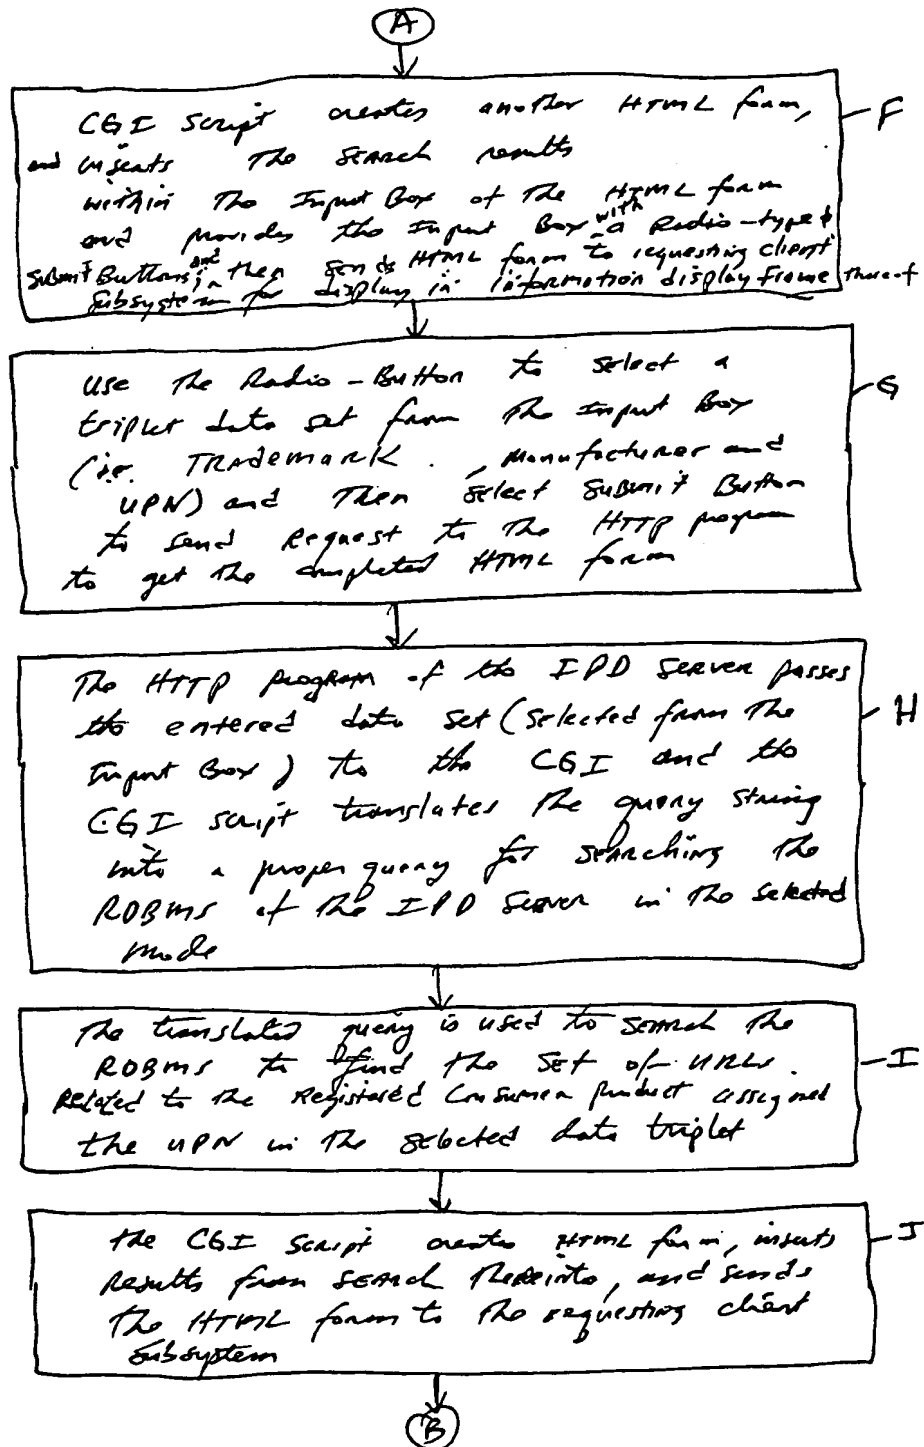 A
CGI Script creates another HTML form,
and inserts The SEARCH results
within The Input Box of The HTML form
and provides the Input Box with a Radio-type &
Submit Buttons; and then sends HTML form to requesting client
Subsystem for display in information display frame thereof
F
use The Radio-Button to select a
triplet data set from The Input Box
(i.e. TRAdemARK , Manufacturer and
UPN) and Then select Submit Button
to send Request to The HTTP program
to get the completed HTML form
G
The HTTP program of the IPD Server passes
the entered data set (selected from The
Input Box) to the CGI and the
CGI script translates the query string
into a proper query for SEARching the
RDBMS of the IPD Server in the selected
mode
H
The translated query is used to SEARCH the
RDBMS to find the Set of URLs
Related to the Registered Consumer product assigned
the UPN in the selected data triplet
I
the CGI Script creates HTML form, inserts
Results from SEARCH Thereinto, and sends
the HTML form to the requesting client
Subsystem
J
B